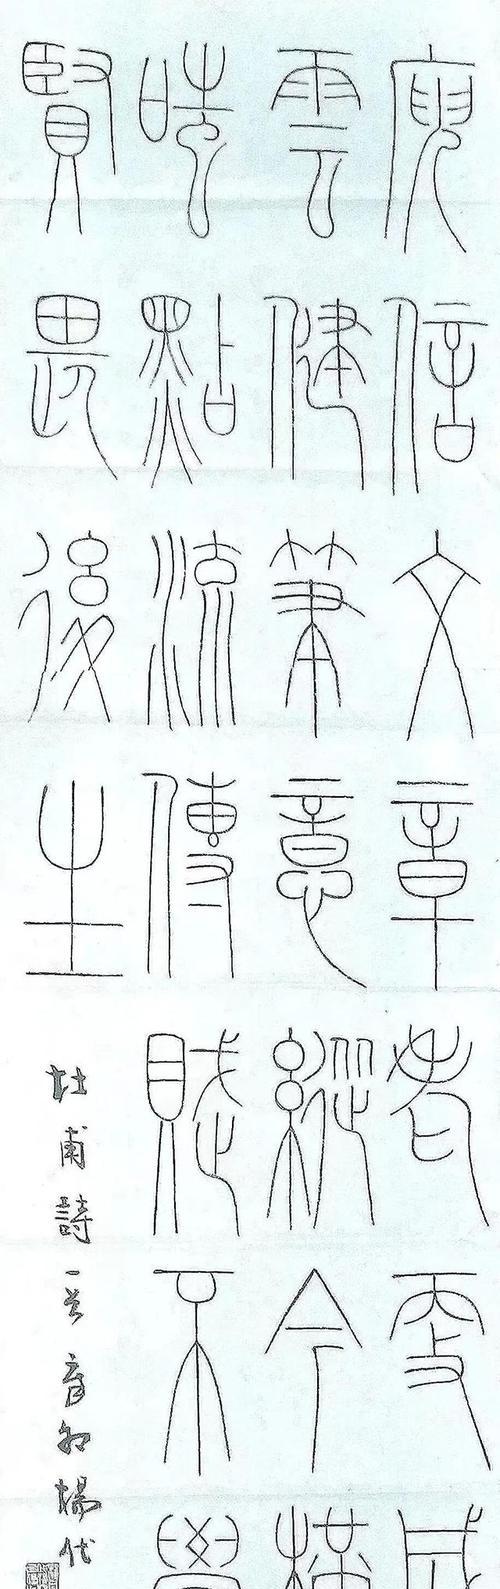 庾信文章老更成
雲健筆意縱今橫
嗤點流傳賦不覺
賢畏後生
杜甫詩一首